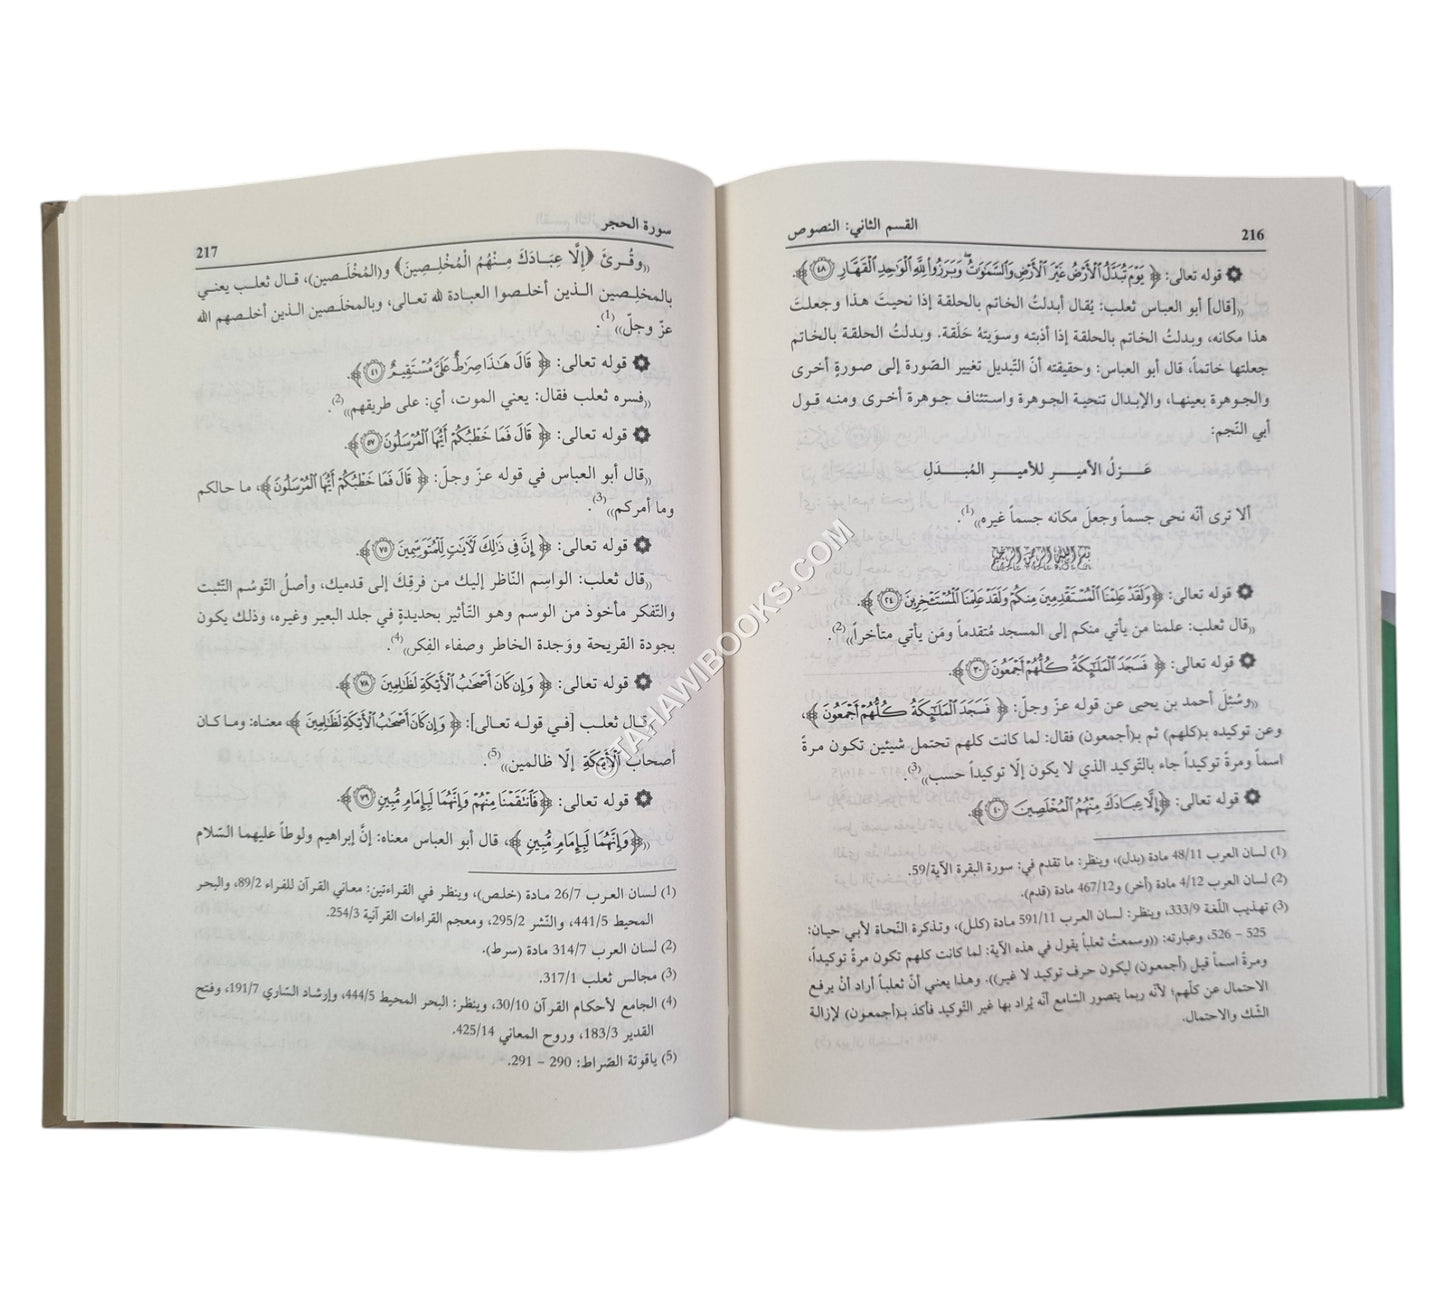 216
القسم الثاني: النصوص
قوله تعالى: ﴿ يَوْمَ تُبَدَّلُ ٱلْأَرْضُ غَيْرَ ٱلْأَرْضِ وَٱلسَّمَٰوَٰتُ ۖ وَبَرَزُوا۟ لِلَّهِ ٱلْوَٰحِدِ ٱلْقَهَّارِ ٤٨ ﴾.
((قال] أبو العباس ثعلب: يُقال أبدلتُ الخاتم بالحلقة إذا نحيتَ هذا وجعلتَ
هذا مكانه، وبدلتُ الخاتم بالحلقة إذا أذبته وسوَيتهُ حَلَقة. وبدلتُ الحلقة بالخاتم
جعلتها خاتماً، قال أبو العباس: وحقيقته أنّ التّبديل تغيير الصّورة إلى صورةٍ أخرى
والجوهرة بعينها، والإبدال تنحية الجوهرة واستئناف جوهرة أخرى ومنه قول
أبي النّجم:
عَـزلُ الأميـرِ للأميـرِ المُبـدَلِ
ألا ترى أنّه نحى جسماً وجعلَ مكانه جسماً غيره))(1).
بسم الله الرحمن الرحيم
قوله تعالى: ﴿ وَلَقَدْ عَلِمْنَا ٱلْمُسْتَقْدِمِينَ مِنكُمْ وَلَقَدْ عَلِمْنَا ٱلْمُسْتَـْٔخِرِينَ ٢٤ ﴾.
((قال ثعلب: علمنا من يأتي منكم إلى المسجد مُتقدماً ومَن يأتي متأخراً))(2).
قوله تعالى: ﴿ فَسَجَدَ ٱلْمَلَٰٓئِكَةُ كُلُّهُمْ أَجْمَعُونَ ٣٠ ﴾.
((وسُئِلَ أحمد بن يحيى عن قوله عزّ وجلّ: ﴿ فَسَجَدَ ٱلْمَلَٰٓئِكَةُ كُلُّهُمْ أَجْمَعُونَ ﴾،
وعن توكيده بـ(كلهم) ثم بـ(أجمعون) فقال: لما كانت كلهم تحتمل شيئين تكون مرةً
اسماً ومرةً توكيداً جاء بالتّوكيد الذي لا يكون إلّا توكيداً حسب))(3).
قوله تعالى: ﴿ إِلَّا عِبَادَكَ مِنْهُمُ ٱلْمُخْلَصِينَ ٤٠ ﴾.
(1) لسان العرب 48/11 مادة (بدل)، وينظر: ما تقدم في: سورة البقرة الآية/59.
(2) لسان العرب 4/12 مادة (أخر) و467/12 مادة (قدم).
(3) تهذيب اللّغة 333/9، وينظر: لسان العرب 591/11 مادة (كلل)، وتذكرة النّحاة لأبي حيان:
525 – 526، وعبارته: ((وسمعتُ ثعلباً يقول في هذه الآية: لما كانت كلهم تكون مرةً توكيداً،
ومرةً اسماً قيل (أجمعون) ليكون حرف توكيد لا غير)). وهذا يعني أنّ ثعلباً أراد أنْ يرفع
الاحتمال عن كلّهم؛ لأنّه ربما يتصور السّامع أنّه يُراد بها غير التّوكيد فأكدَ بـ(أجمعون) لإزالة
الشّك والاحتمال.
سورة الحجر
217
((وقُـرئَ ﴿إلَّا عِبَـادَكَ مِنْـهُمُ الْمُخْلِـصِينَ﴾ و(المُخْلَـصين)، قـال ثعلـب يعنـي
بالمخلِـصين الـذين أخلـصوا العبـادة لله تعـالى، وبالمخلَـصين الـذين أخلـصهم الله
عزّ وجلّ))(1).
قوله تعالى: ﴿ قَالَ هَٰذَا صِرَٰطٌ عَلَىَّ مُسْتَقِيمٌ ٤١ ﴾.
((فسره ثعلب فقال: يعني الموت، أي: على طريقهم))(2).
قوله تعالى: ﴿ قَالَ فَمَا خَطْبُكُمْ أَيُّهَا ٱلْمُرْسَلُونَ ٥٧ ﴾.
((قال أبو العباس في قوله عزّ وجلّ: ﴿ قَالَ فَمَا خَطْبُكُمْ أَيُّهَا ٱلْمُرْسَلُونَ ﴾، ما حالكم
وما أمركم))(3).
قوله تعالى: ﴿ إِنَّ فِى ذَٰلِكَ لَءَايَٰتٍ لِّلْمُتَوَسِّمِينَ ٧٥ ﴾.
((قال ثعلب: الواسِم النّاظر إليك من فرقِكَ إلى قدميك، وأصلُ التّوسُم التّثبت
والتّفكر مأخوذ من الوسم وهو التّأثير بحديدةٍ في جلد البعير وغيره، وذلك يكون
بجودة القريحة ووَجدة الخاطر وصفاء الفِكر))(4).
قوله تعالى: ﴿ وَإِن كَانَ أَصْحَٰبُ ٱلْأَيْكَةِ لَظَٰلِمِينَ ٧٨ ﴾.
((قـال ثعلـب [فـي قولـه تعـالى]: ﴿ وَإِن كَانَ أَصْحَٰبُ ٱلْأَيْكَةِ لَظَٰلِمِينَ ﴾، معناه: ومـا كـان
أصحابُ ٱلْأَيْكَةِ إلّا ظالمين))(5).
قوله تعالى: ﴿ فَٱنتَقَمْنَا مِنْهُمْ وَإِنَّهُمَا لَبِإِمَامٍ مُّبِينٍ ٧٩ ﴾.
((﴿ وَإِنَّهُمَا لَبِإِمَامٍ مُّبِينٍ ﴾، قال أبو العباس معناه: إنّ إبراهيم ولوطاً عليهما السّلام
(1) لسان العرب 26/7 مادة (خلص)، وينظر في القراءتين: معاني القرآن للفراء 89/2، والبحر
المحيط 441/5، والنّشر 295/2، ومعجم القراءات القرآنية 254/3.
(2) لسان العرب 314/7 مادة (سرط).
(3) مجالس ثعلب 317/1.
(4) الجامع لأحكام القرآن 30/10، وينظر: البحر المحيط 444/5، وإرشاد السّاري 191/7، وفتح
القدير 183/3، وروح المعاني 425/14.
(5) ياقوتة الصّراط: 290 – 291.
© TAHAWIBOOKS.COM